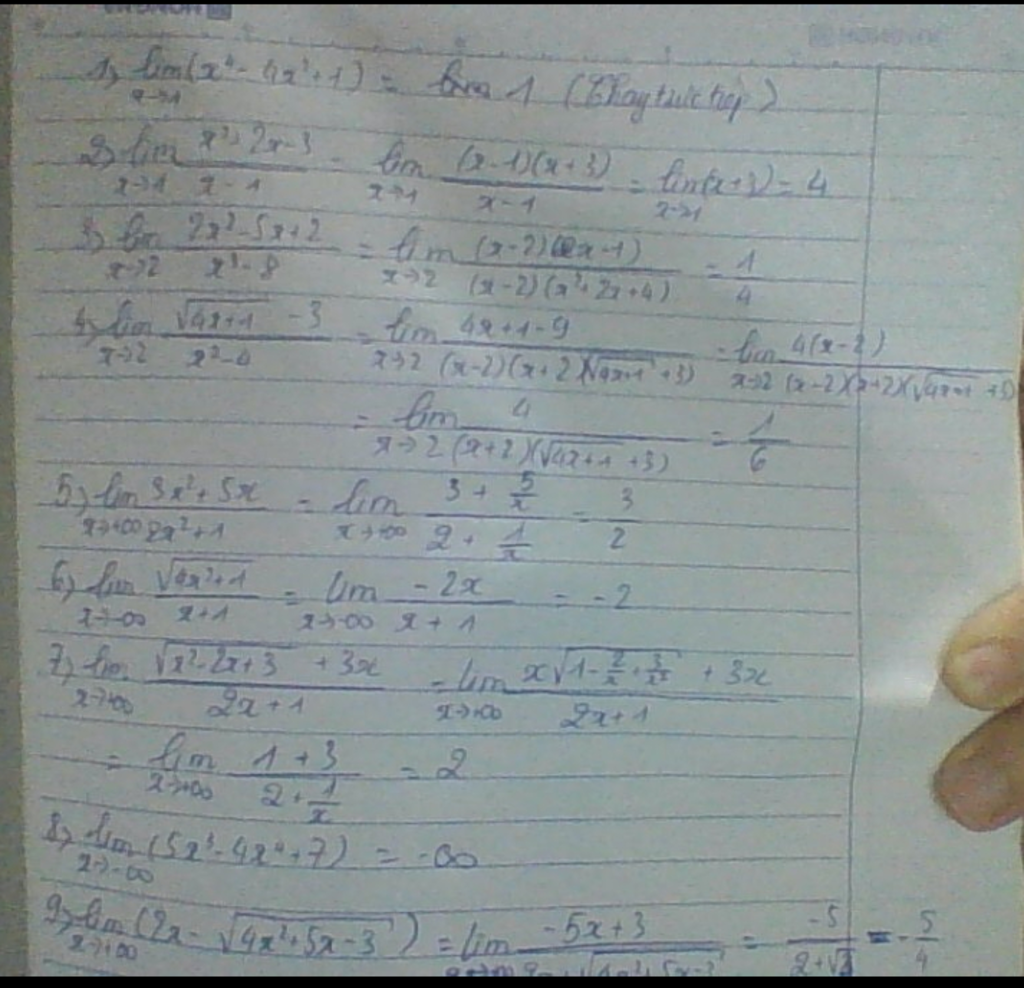 1) lim(x⁴ - 4x³ + 1) = lim 1 (Thay trực tiếp)
x→1
2) lim x² + 2x - 3 / x - 1 = lim (x-1)(x+3) / x-1 = lim(x+3) = 4
x→1 x→1 x→1
3) lim 2x² - 5x + 2 / x³ - 8 = lim (x-2)(2x-1) / (x-2)(x²+2x+4) = 1/4
x→2 x→2
4) lim √4x+1 - 3 / x² - 4 = lim 4x+1-9 / (x-2)(x+2)(√4x+1 + 3) = lim 4(x-2) / (x-2)(x+2)(√4x+1 + 3)
x→2 x→2 x→2
= lim 4 / (x+2)(√4x+1 + 3) = 1/6
x→2
5) lim 3x² + 5x / 2x² + 1 = lim 3 + 5/x / 2 + 1/x = 3/2
x→+∞ x→+∞
6) lim √4x²+1 / x+1 = lim -2x / x+1 = -2
x→-∞ x→-∞
7) lim √x²-2x+3 + 3x / 2x+1 = lim x√1 - 2/x + 3/x² + 3x / 2x+1
x→+∞ x→+∞
= lim 1+3 / 2 + 1/x = 2
x→+∞
8) lim (5x³ - 4x⁴ + 7) = -∞
x→-∞
9) lim (2x - √4x²+5x-3) = lim -5x+3 / 2x + √4x²+5x-3 = -5 / 2+√ = -5/4
x→+∞ x→+∞